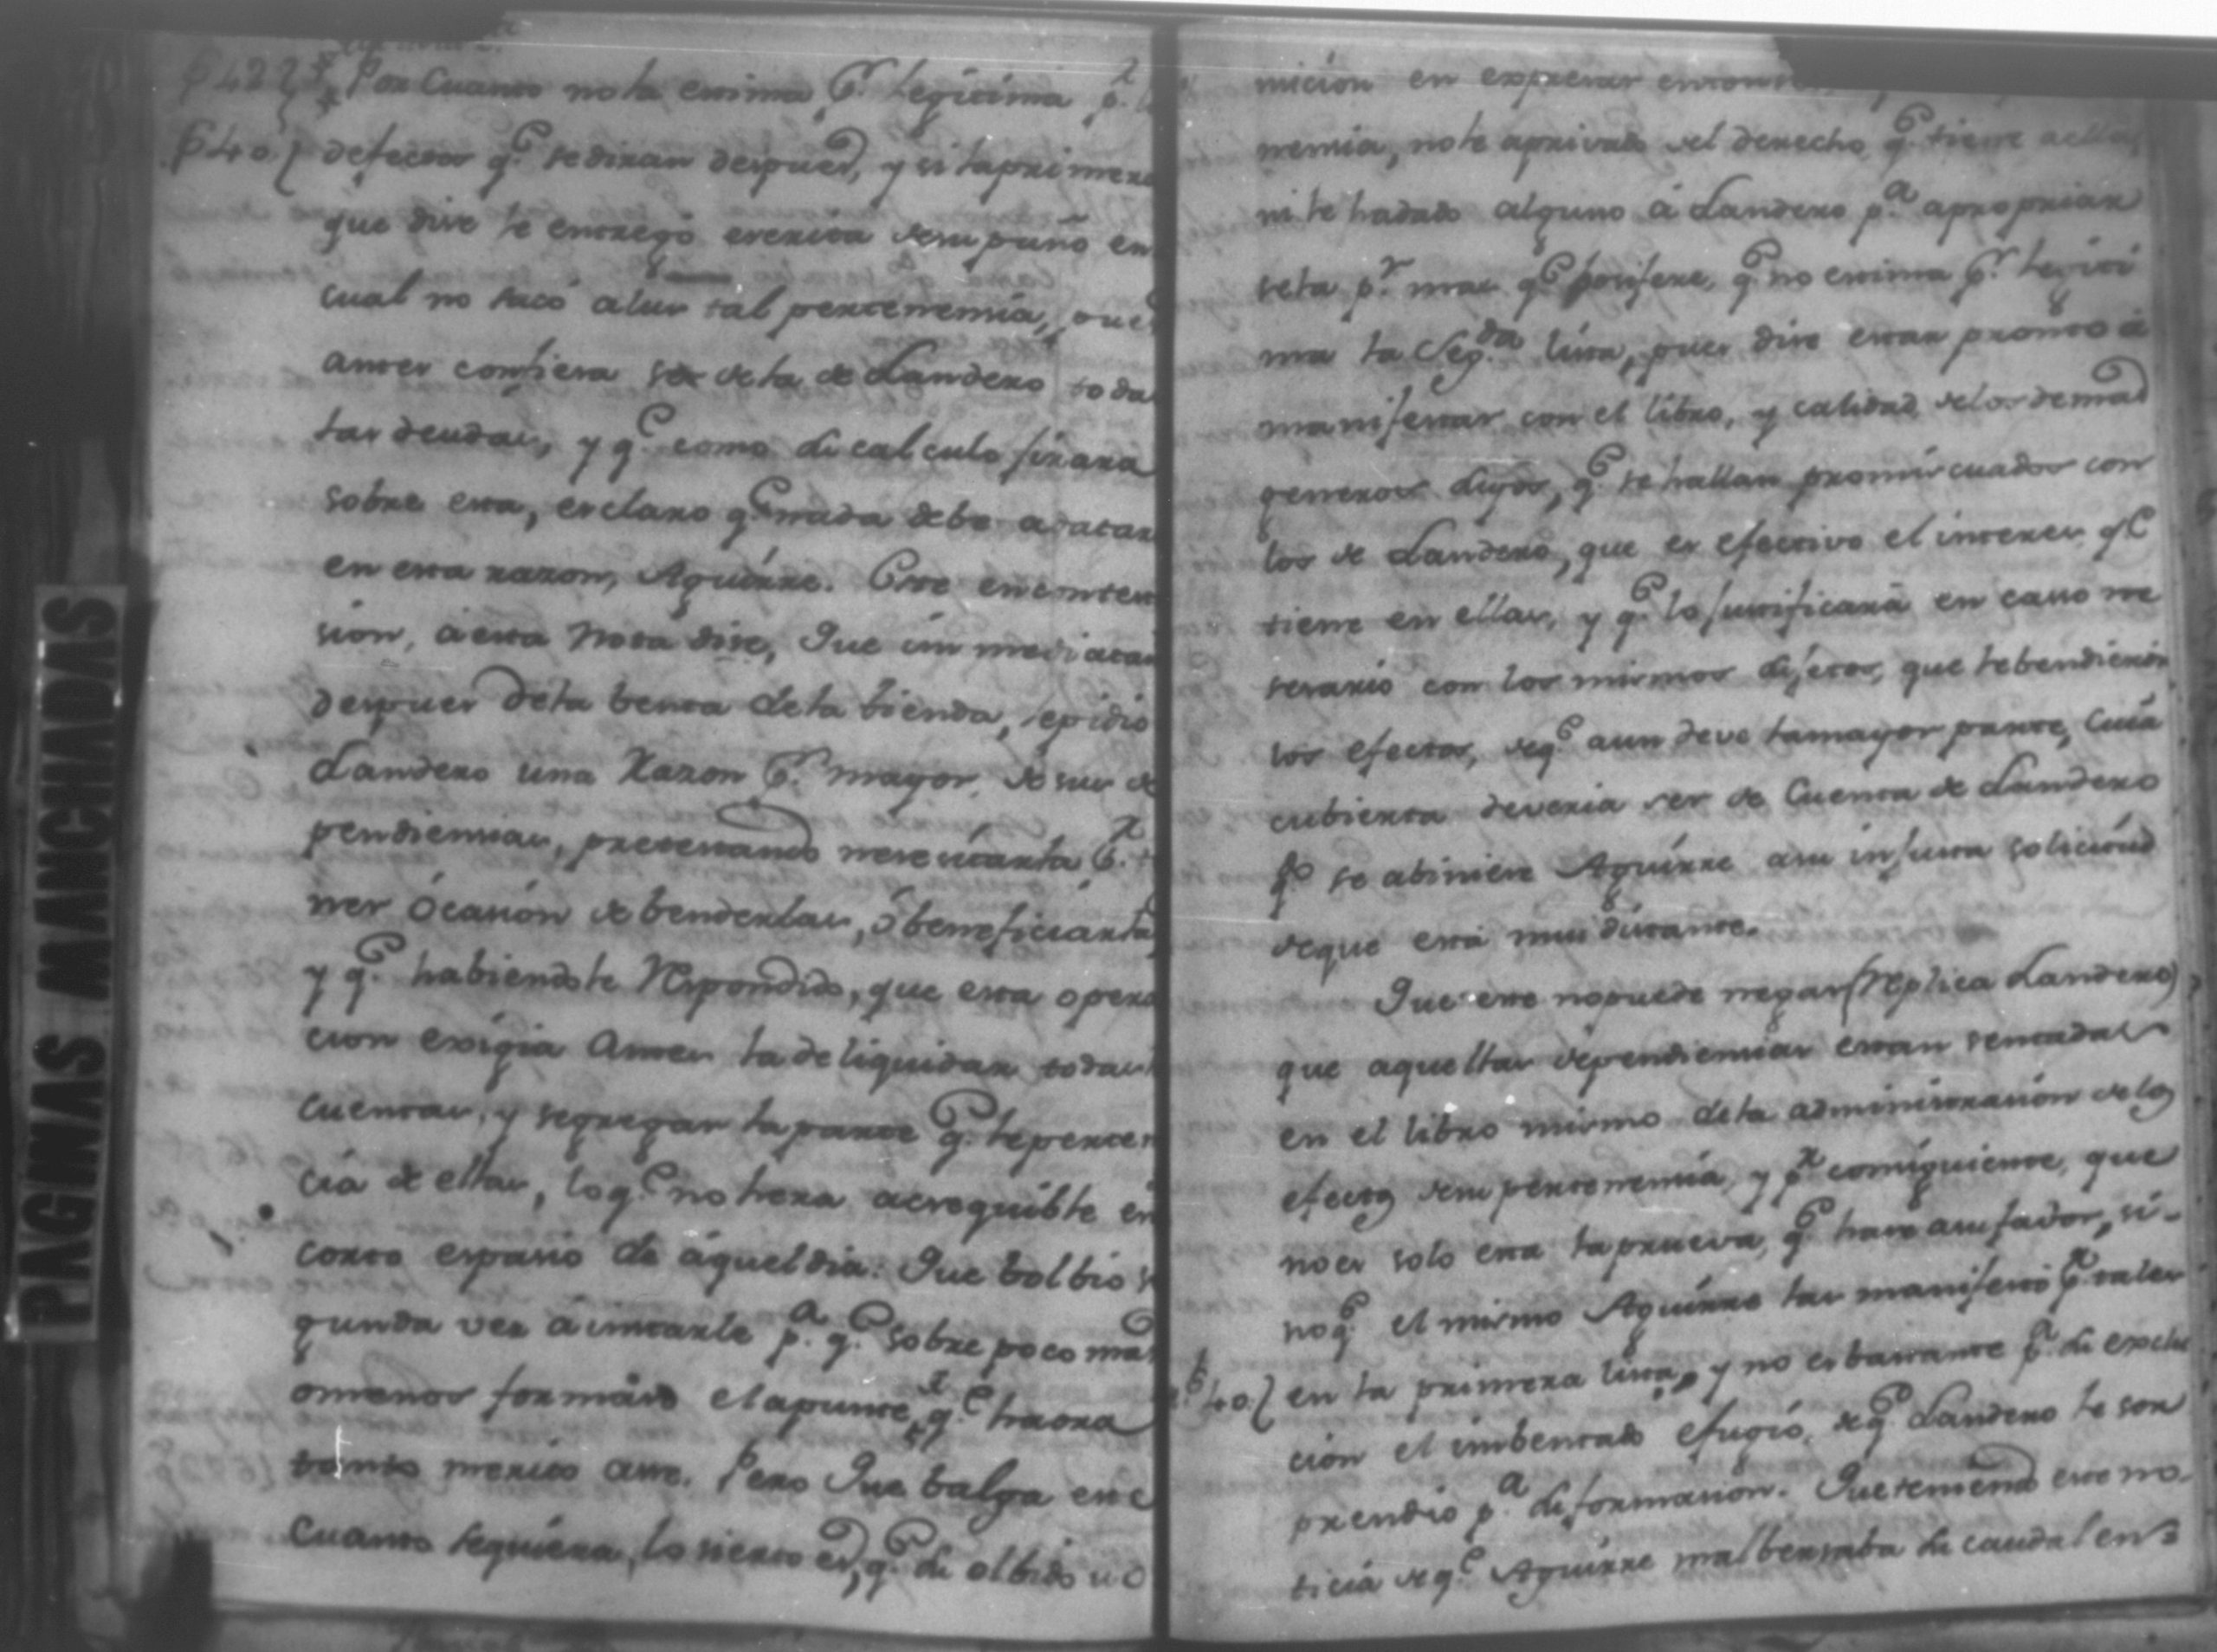 Por Cuanto no la estima p.r legitima p.r
defectos q.e se diran despues, y si la primera
que dise le entregó escrita de su puño en
cual no sacó a lus tal pertenensia, pues
antes confiesa ser de la de Landero toda
las deudas, y q.e como su calculo jirara
sobre esta, es claro q.e nada debe a
en esta razon, Aguirre. Este en contex
sion, á esta Nota dise, Que inmediata
despues de la benta de la tienda, le pidio
Landero una Razon p.r mayor, de sus de
pendiensias, protestando nesesitarla p.r
ner ócasión de benderlas, ó beneficiarlas
y q.e habiendole Respondido, que esta opera
cion exigia Antes la de liquidar todas
Cuentas, y segregar la parte q.e le perten
cía de ellas, lo q.e no hera acsequible en
corto espasio de aquel dia: Que bolbió se
gunda ves á instarle p.a q.e sobre poco mas
omenos formára el apunte, q.e haora
tanto merito ase. Pero Que balga en e
Cuanto se quiera, lo sierto es, q.e su olbido u o
mición en expresar
nensia, no le a privado del derecho q.e tiene a ellas
ni le ha dado alguno á Landero p.a apropriar
sela p.r mas q.e q.e no estima p.r legiti
ma la Seg.da lista, pues dise estar pronto á
manifestar con el libro, y calidad de los demas
generos suyos, q.e se hallan promiscuados con
los de Landero, que es efectivo el interes q.e
tiene en ellas, y q.e lo justificará en caso ne
sesario con los mismos sujetos, que le bendieron
los efectos, de q.e aun deve la mayor parte, Cuia
cubierta deveria ser de Cuenta de Landero
q.do se abiniere Aguirre a su injusta solicitud
de que está mui distante.
Que este no puede negar (replica Landero)
que aquellas dependiensias estan sentadas
en el libro mismo de la administrasión de los
efectos de su pertenensia, y p.r consiguiente, que
no es solo esta la prueva, q.e hase a su favor, si-
no q.e el mismo Aguirre las manifestó p.r tales
en la primera lista, y no es bastante p.a su exclu
cion el inbentado efugio, de q.e Landero le sor
prendió p.a su formasion. Que teniendo este no-
ticia de q.e Aguirre malbersaba su caudal en
PAGINAS MANCHADAS